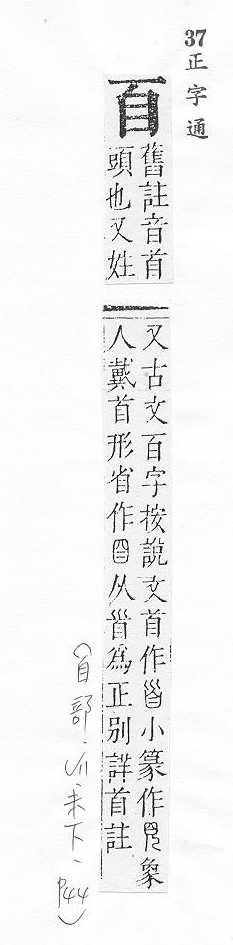 37正字通
𦣻
舊註音首
頭也又姓
又古文百字按說文首作𩠐小篆作象
人戴首形省作从𩠐為正別詳首註
(自部、未下、P44)